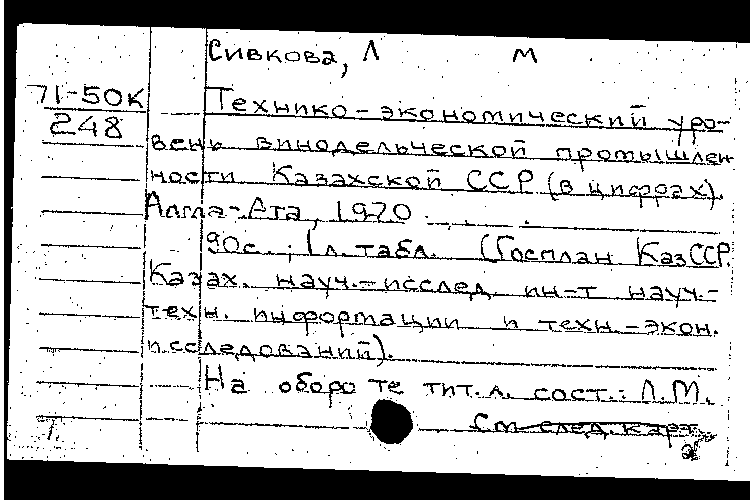 Сивкова, Л М
71-50К
248
Технико-экономический уро-
вень винодельческой промышлен
ности Казахской ССР (в цифрах).
Алма-Ата, 1970
90с., 1 л. табл. (Госплан КазССР.
Казах. науч.-исслед. ин-т науч.-
техн. информации и техн.-экон.
исследований).
На обороте тит. л. сост.: Л.М.
См. след. карт.